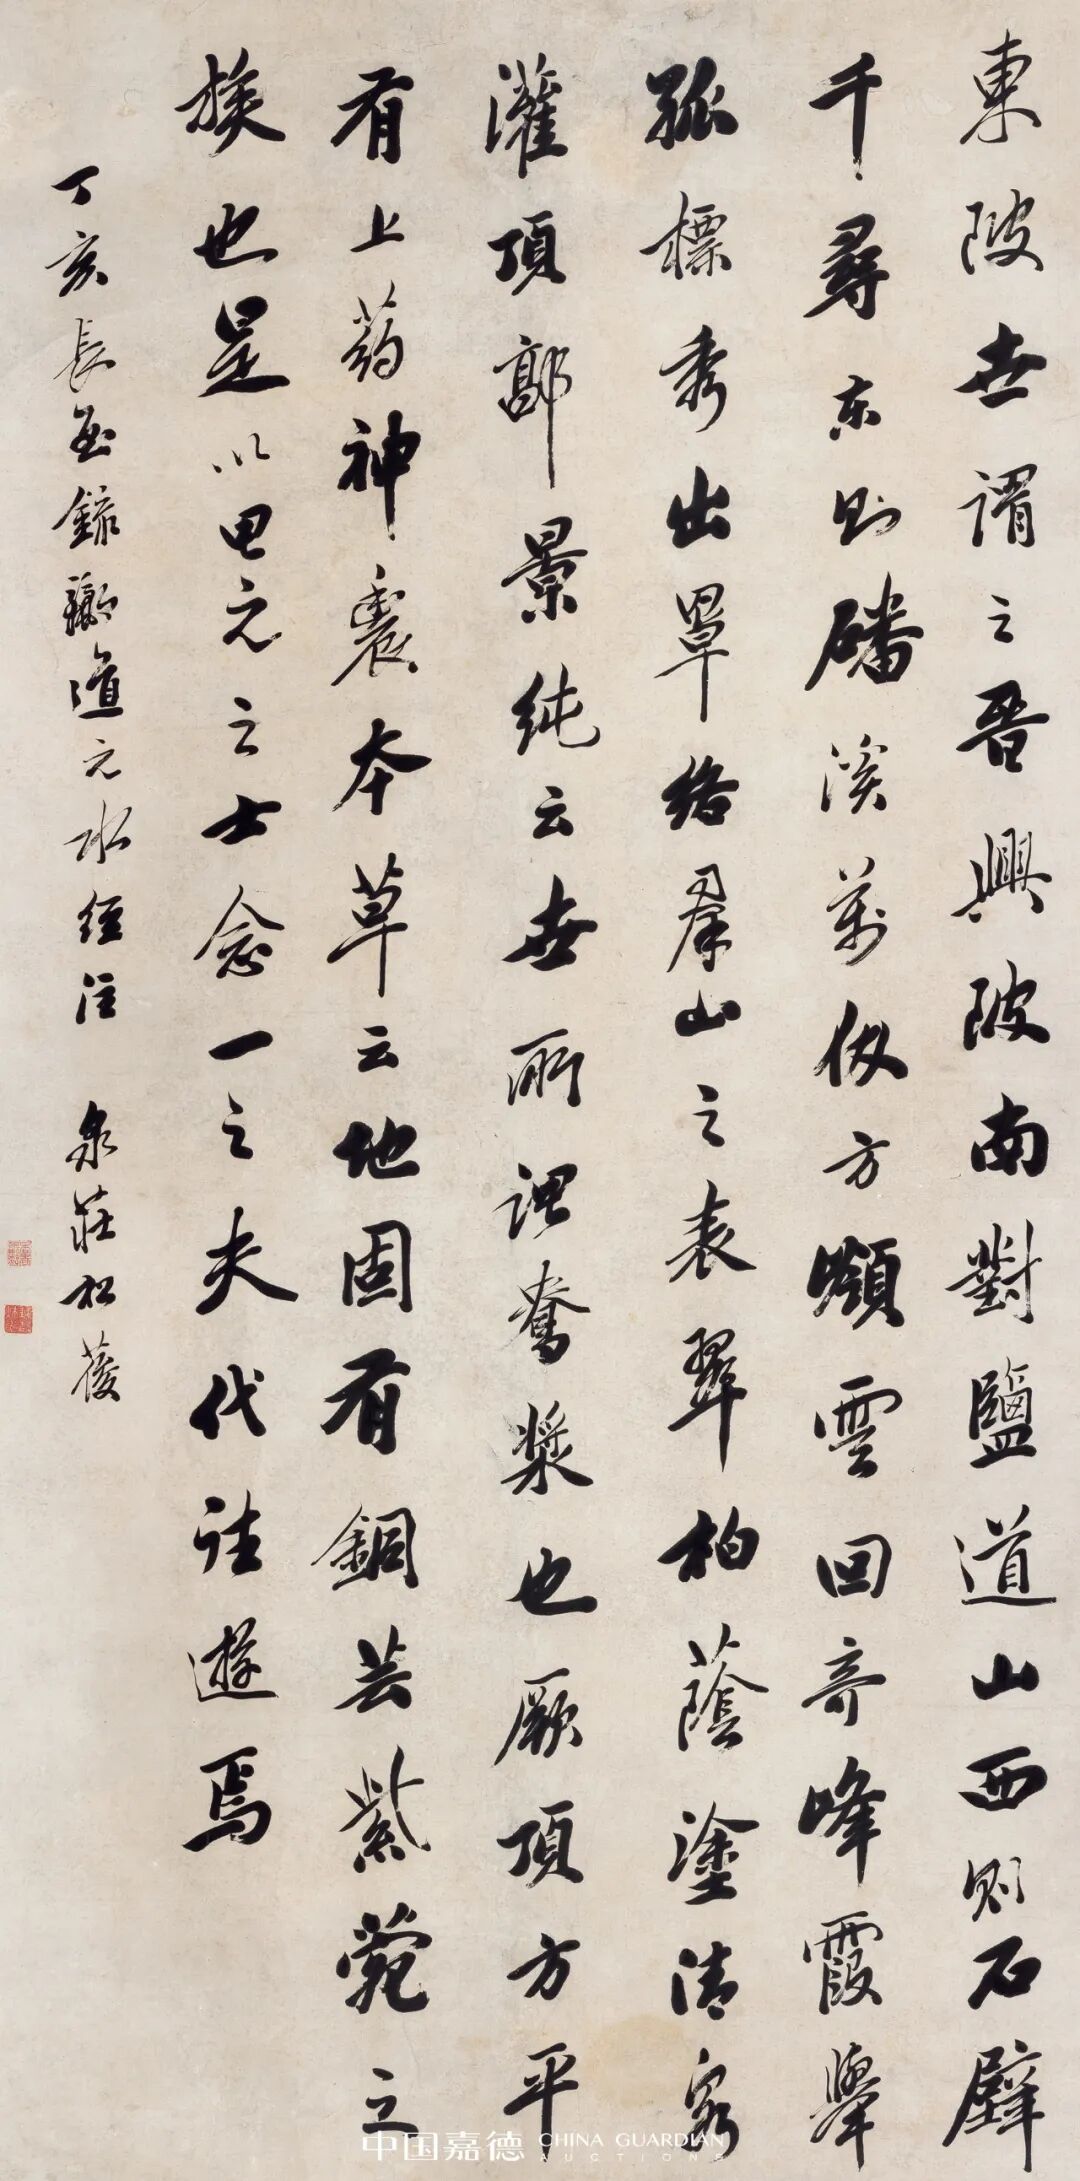 東陂世謂之晉興陂南對鹽道山西則石壁
千尋東則磻溪萬仞方嶺雲回奇峰霞舉
孤標秀出罩絡羣山之表翠柏蔭塗清泉
灌頂郭景純云世所謂鴦漿也厥頂方平
有上藥神農本草云地固有銅芸紫菀之
族也是以甲元之士念一之夫代往遊焉
丁亥長至錄酈道元水經注 泉莊松葰
中国嘉德 CHINA GUARDIAN AUCTIONS